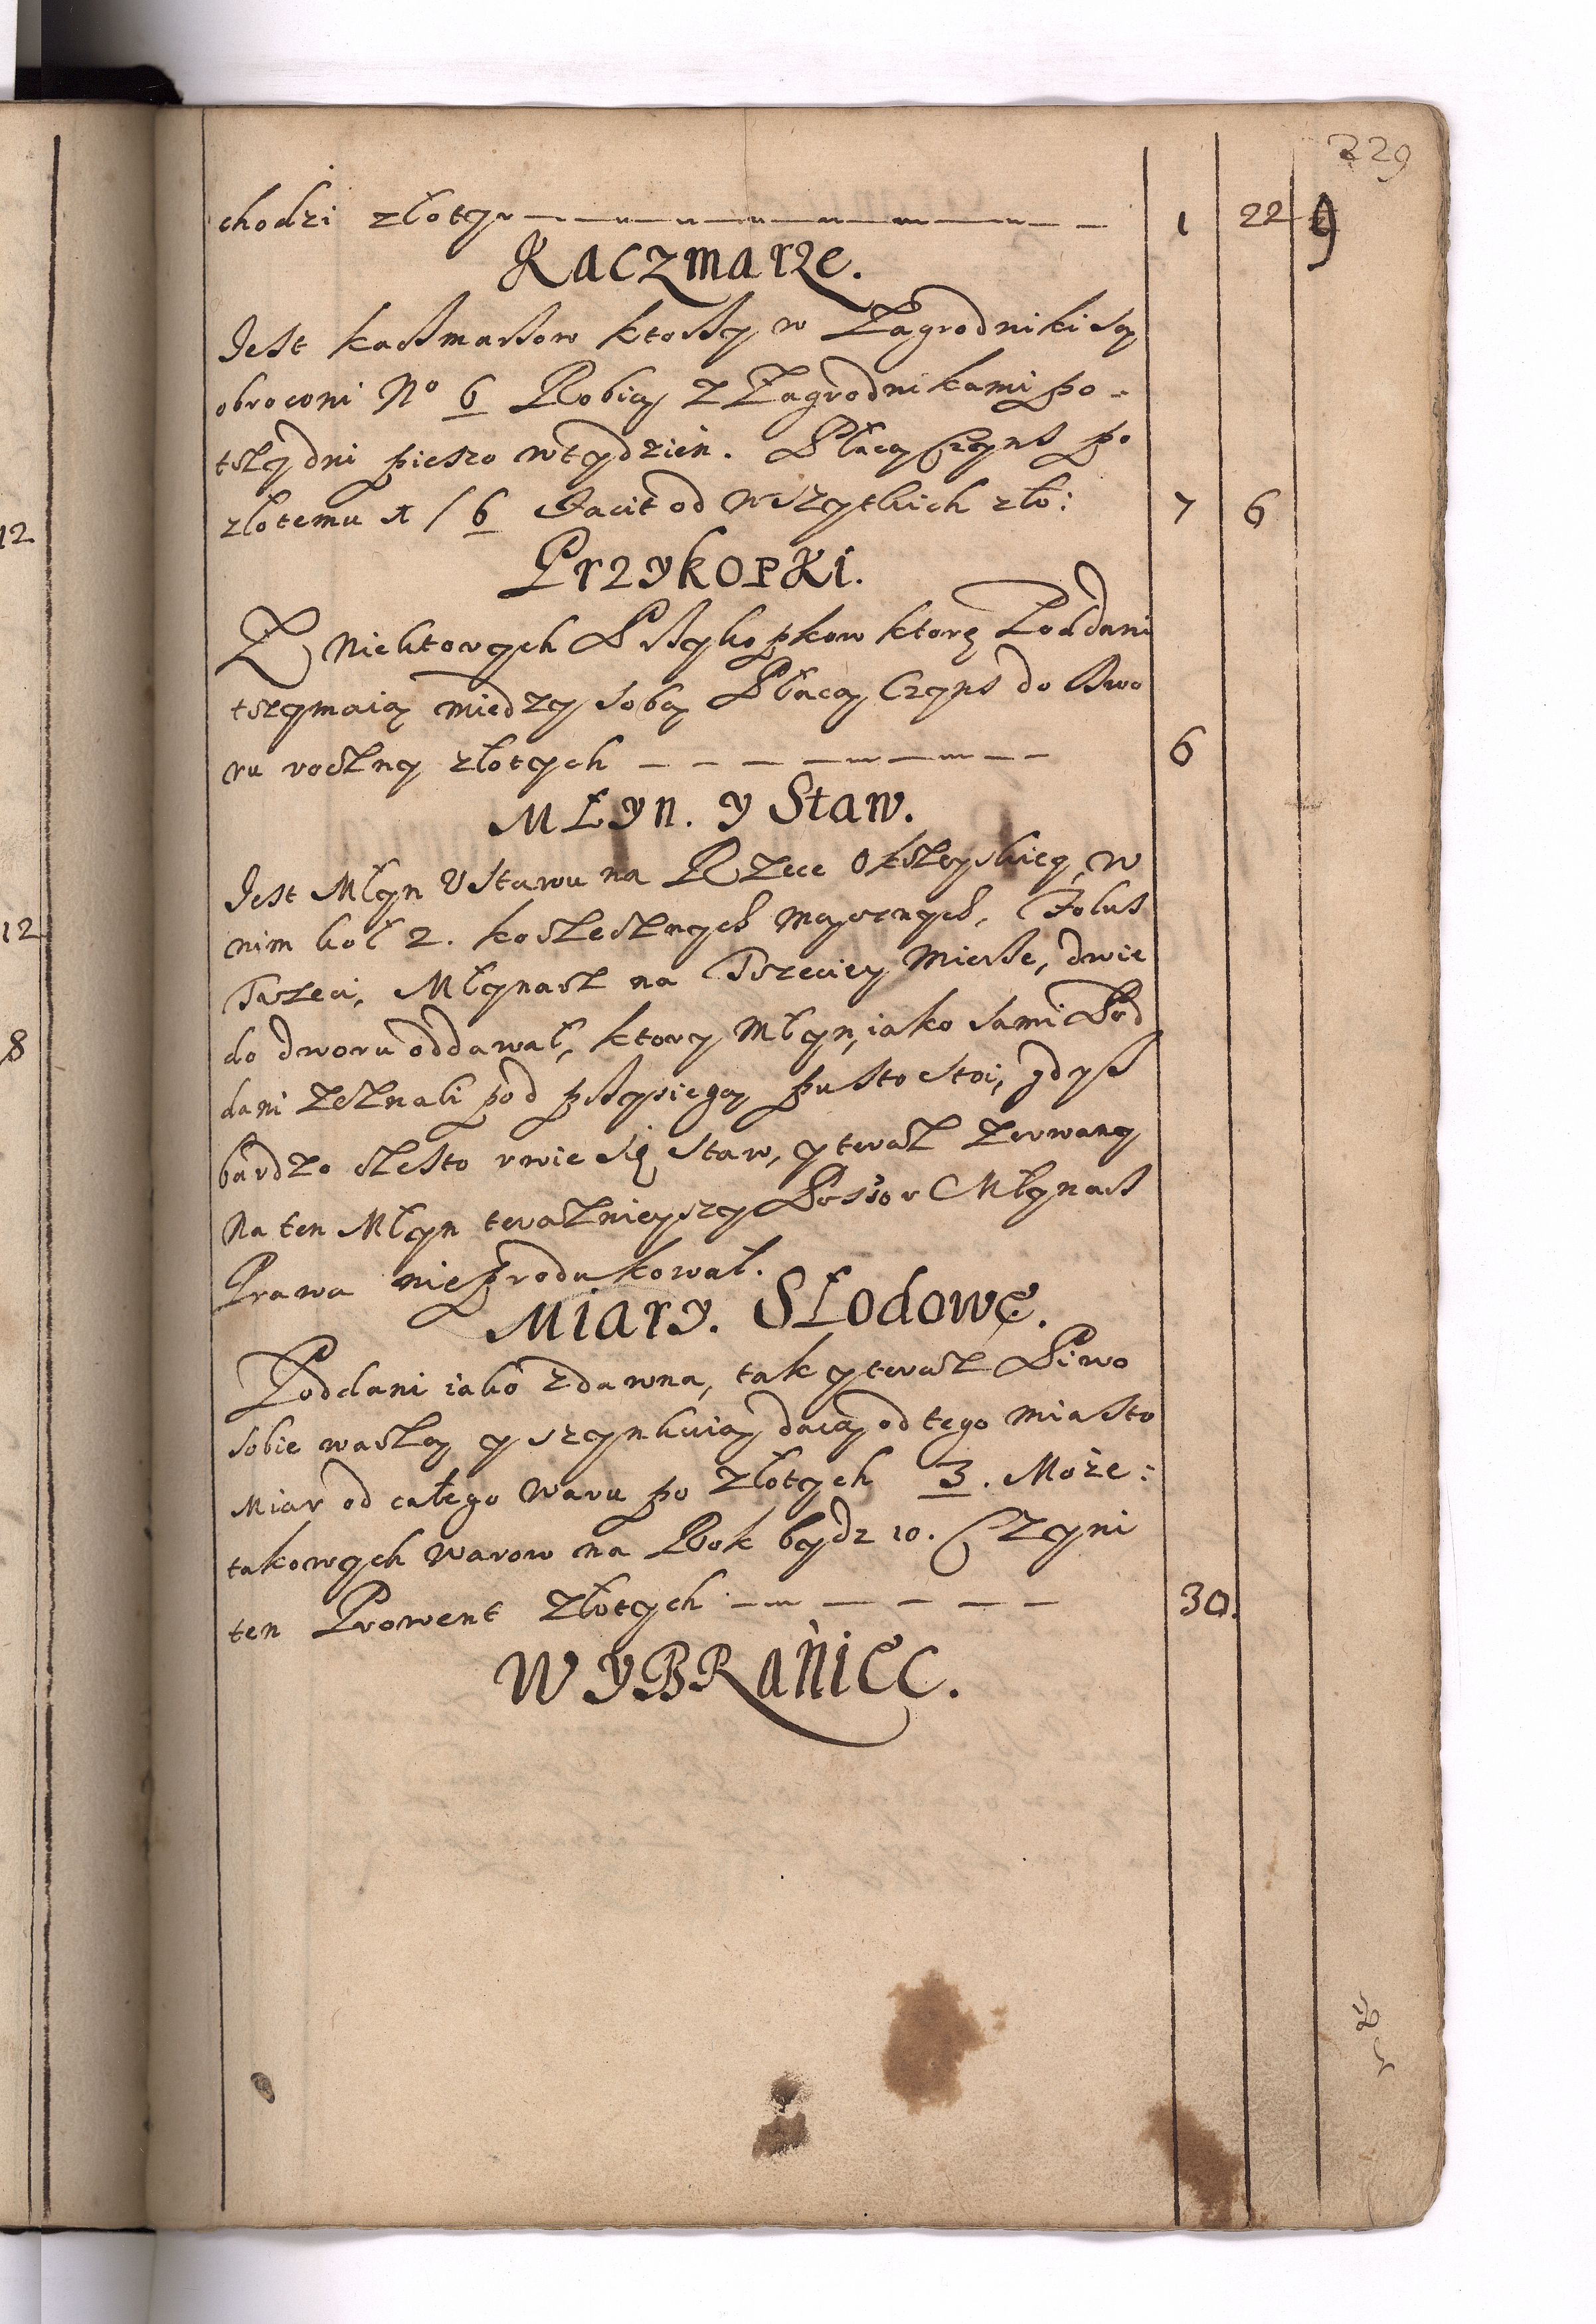 229
chodzi złotyr — — — — — — — — — 1 22 9
Kaczmarze.
Jest kaczmarzow ktorzy w Zagrodniki są
obroconi No 6 Robią z Zagrodnikami po-
trzy dni pieszo w tydzien. Płacą Czyns po
złotemu 1 / 6 Facit od wszytkich zło: 7 6
Przykopki.
Z Niektorych Przykopkow ktorę Poddani
trzymaią między sobą Płacą Czyns do Dwo
ru roczny złotych — — — — — — — 6
Młyn. y Staw.
Jest Młyn v Stawu na Rzece w
nim koł 2. korzecznych mącznych, Folusz
Trzeci, Młynarz na Trzeciey Mierze, dwie
do dworu oddawał, ktory Młyn, iako sami Pod
dani zeznali pod przysięgą pusto stoi, gdysz
bardzo często rwie się Staw, y teraz zerwany
Na ten Młyn teraznieyszy Possor Młynarz
Prawa nie produkował.
Miary. Słodowę.
Poddani iako zdawna, tak y teraz Piwo
sobie warzą y szynkuią dacą od tego miasto
Miar od całego Waru po Złotych 3. Może:
takowych Warow na Rok bydz 10. Czyni
ten Prowent Złotych — — — — — — 30.
WYBRANIEC.
12
12
8